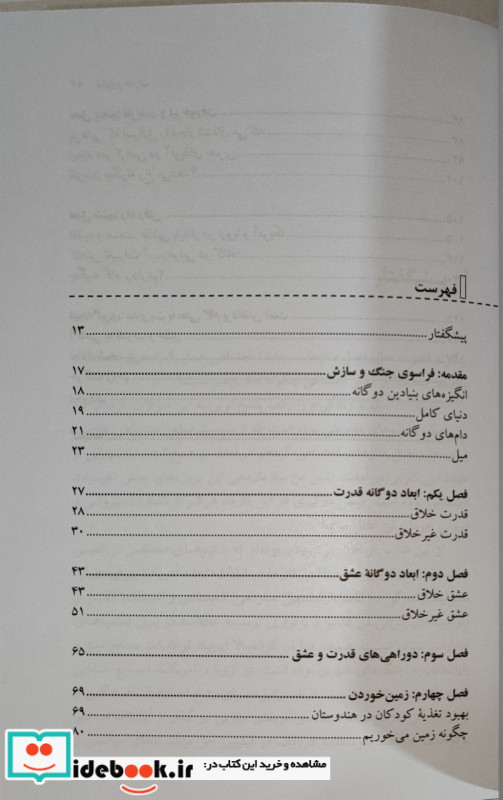 فهرست
پیشگفتار ........ ۱۳
مقدمه: فراسوی جنگ و سازش ........ ۱۷
انگیزه‌های بنیادین دوگانه ........ ۱۸
دنیای کامل ........ ۱۹
دام‌های دوگانه ........ ۲۱
میل ........ ۲۳
فصل یکم: ابعاد دوگانه قدرت ........ ۲۷
قدرت خلاق ........ ۲۸
قدرت غیرخلاق ........ ۳۰
فصل دوم: ابعاد دوگانۀ عشق ........ ۴۳
عشق خلاق ........ ۴۳
عشق غیرخلاق ........ ۵۱
فصل سوم: دوراهی‌های قدرت و عشق ........ ۶۵
فصل چهارم: زمین‌خوردن ........ ۶۹
بهبود تغذیۀ کودکان در هندوستان ........ ۶۹
چگونه زمین می‌خوریم ........ ۸۰
idebook.ir
مشاهده و خرید این کتاب در: